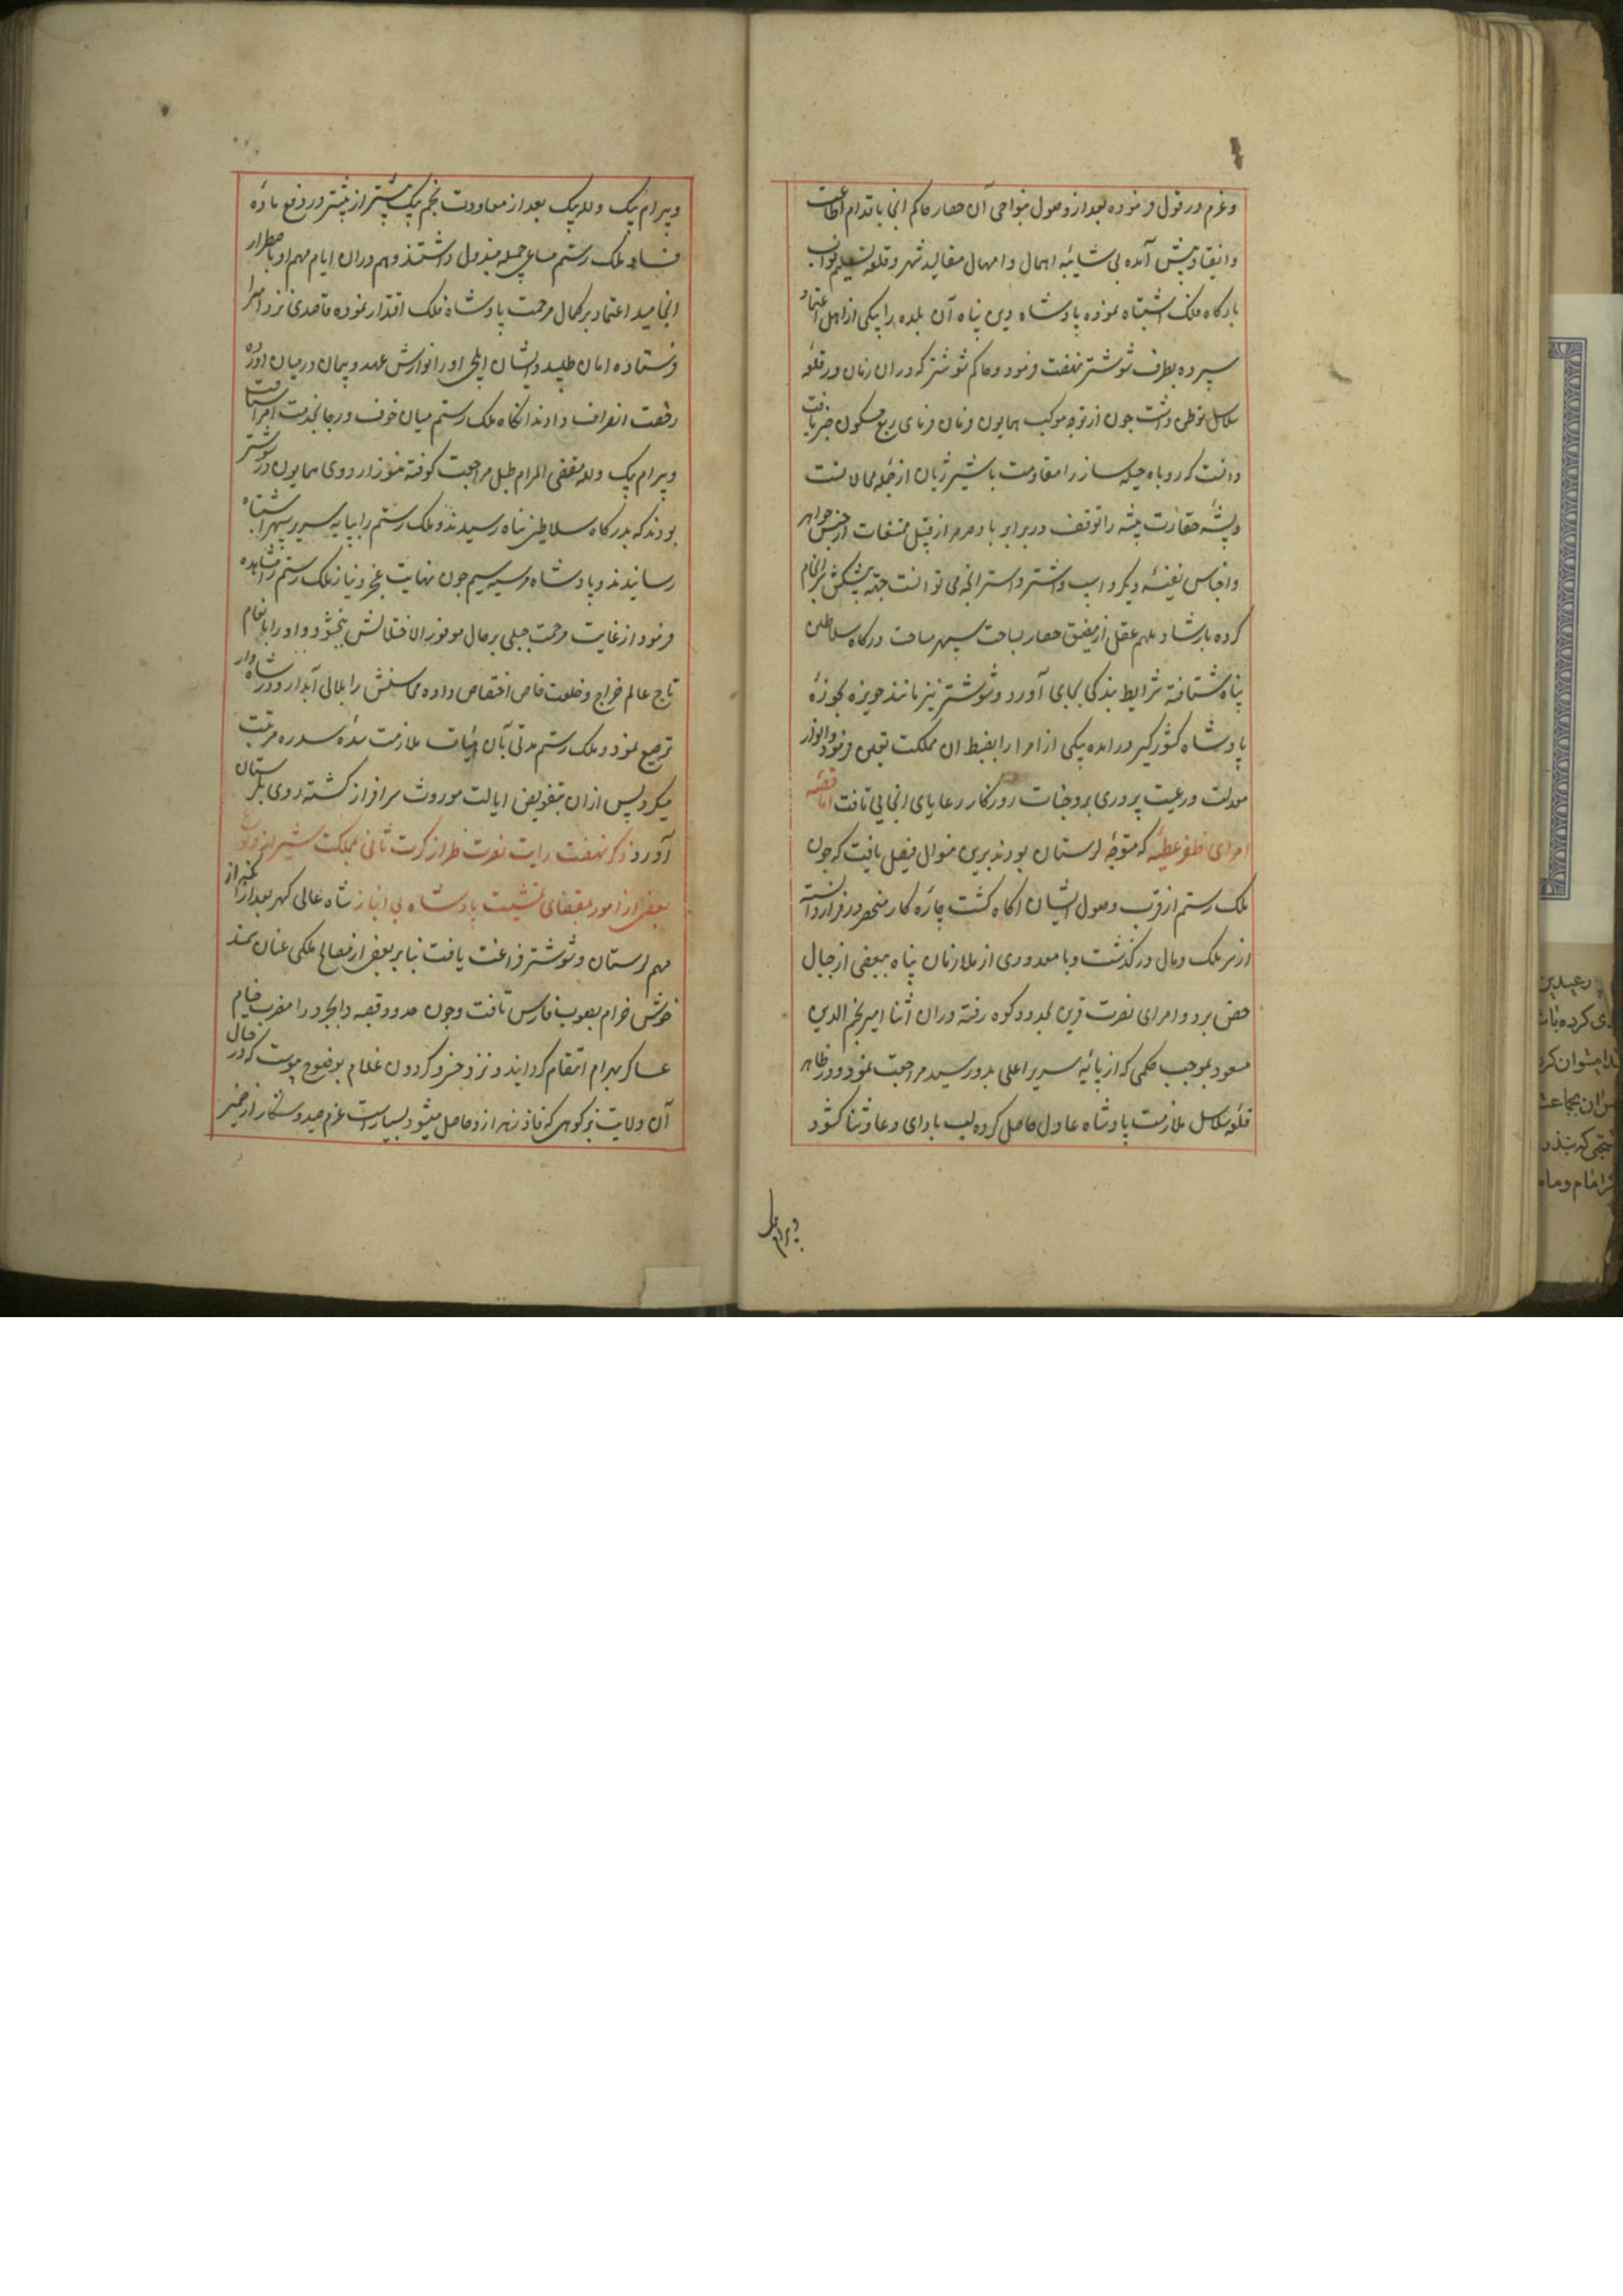 وعزم درقول فرموده بعد از وصول بنواحی آن حصار حاکم انجا باقدام اطاعت
وانقیاد پیش آمده بی شایبه اهمال وامهال مقالید شهر وقلعه تسلیم نواب
بارکاه فلک اشتباه نموده پادشاه دین پناه آن بلده را بیکی ازاهل اعتماد
سپرده بطرف شوشتر نهضت فرمود وحاکم شوشتر که دران زمان در قلعه
سلاسل توطن داشت جون از توجه موکب همایون فرمان فرمای ربع مسکون خبر یافت
دانست که روباه حیله ساز را مقاومت با شیر ژیان از جمله محالاتست
وپشه حقارت پیشه را توقف در برابر باد صرصر از قبیل ممتنعات از جنس جواهر
واجناس نفیسه ودیکر واسپ واشتر واستر انجه می توانست جهة پیشکش سرانجام
کرده بارشاد ملهم عقل از مضیق حصار بساحت سپهر مساحت درکاه سلاطین
پناه شتافته شرایط بندکی بجای آورد وشوشتر نیز مانند حویزه بحوزهٔ
پادشاه کشورکیر درآمده یکی از امرا را بضبط ان مملکت تعیین فرمود وانوار
معدلت ورعیت پروری بر وجنات روزکار رعایای انجایی تافت اما قصهٔ
امرای ظفر عطیه که متوجه لرستان بودند برین منوال فیصل یافت که جون
ملک رستم از قرب وصول ایشان اکاه کشت چارهٔ کار منحصر در فرار دانسته
از سر ملک ومال درکذشت وبا معدودی از ملازمان پناه ببعضی از جبال
حصن برد وامرای نصرت قرین بحدود کوه رفته دران اثنا امیر نجم الدین
مسعود بموجب حکمی که از پایهٔ سریر اعلی بدو رسید مراجعت نمود ودر ظاهر
قلعه سلاسل ملازمت پادشاه عادل حاصل کرده لب بادای دعا وثنا کشود
وبیرام بک
وبیرام بیک ولله بیک بعد از معاودت نجم بیک بیشتر از پیشتر در دفع مادهٔ
فساد ملک رستم مساعی جمیله مبذول داشتند وهم دران ایام مهم او باضطرار
انجامید اعتماد بر کمال مرحمت پادشاه فلک اقتدار نموده قاصدی نزد امرا
فرستاده امان طلبید وایشان ایلچی او را نوازش عهد وپیمان درمیان آورده
رخصت انصراف دادند انکاه ملک رستم میان خوف ورجا بخدمت امرا شتافت
وبیرام بیک ولله مقضی المرام طبل مراجعت کوفته هنوز اردوی همایون در شوشتر
بودند که بدرکاه سلاطین پناه رسیدند وملک رستم را بپایه سریر سپهر اشتباه
رسانیدند وپادشاه جون نهایت عجز ونیاز ملک رستم را مشاهده
فرمود از غایت مرحمت جبلی بر حال موفور الاختلالش ببخشود واو را بانعام
تاج عالم خراج وخلعت خاص اختصاص داده محاسنش را بلالی آبدار ودر شاهوار
ترصیع نمود وملک رستم مدتی بآن هیات ملازمت سدهٔ سدره مرتبت
میکرد پس ازان بتفویض ایالت موروث سرافراز کشته روی بلرستان
آورد ذکر نهضت رایت نصرت طراز کرت ثانی بمملکت شیراز ووقوع
بعضی از امور بمقتضای مشیت پادشاه بی انباز شاه عالی کهر بعد از آنکه از
مهم لرستان وشوشتر فراغت یافت بنابر بعضی از مصالح ملکی عنان سمند
خوش خرام بصوب فارس تافت وجون حدود قصبه دارابجرد را مضرب خیام
عساکر بهرام انتقام کردانید ونزد خسرو کردون غلام بوضوح پیوست که در جبال
آن ولایت بز کوهی که فاد زهر ازو حاصل میشود بسیارست عزم صید وشکار از ضمیر